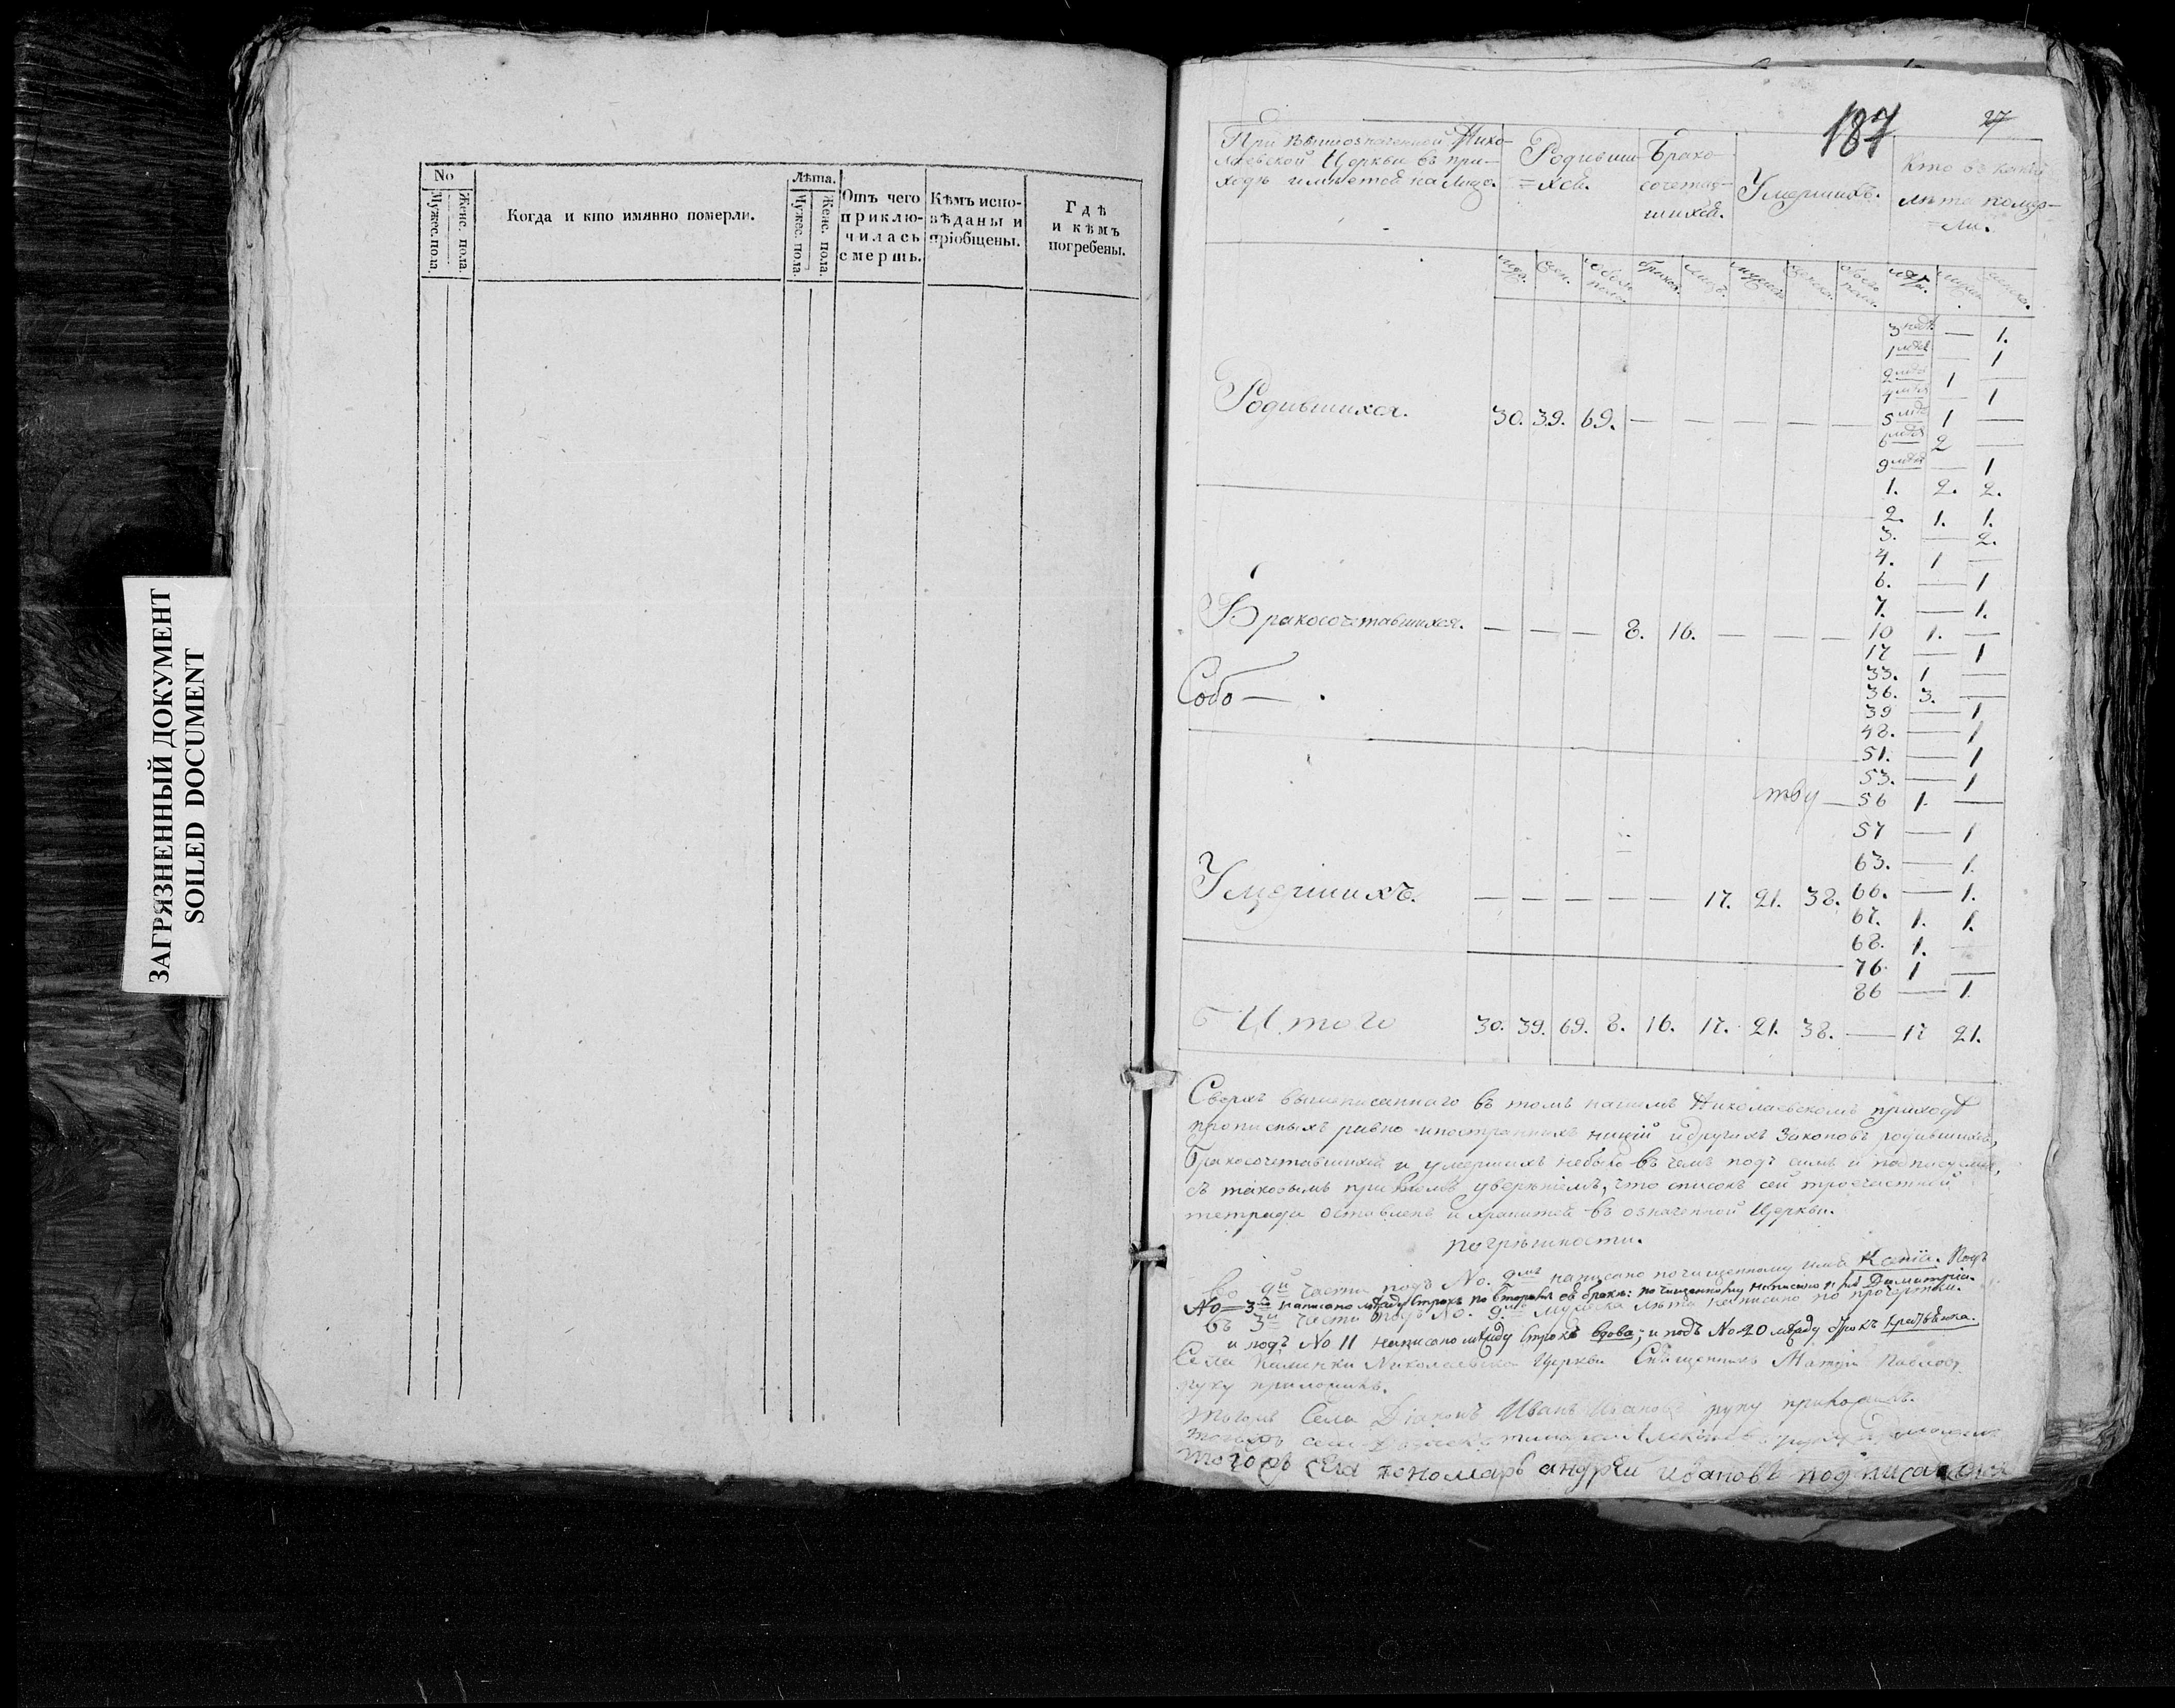 ЗАГРЯЗНЕННЫЙ ДОКУМЕНТ
SOILED DOCUMENT
No
Мужес. пола.
Женс. пола.
Когда и кто имянно померли.
Лѣта.
Мужес. пола.
Женс. пола.
Отъ чего
приклю-
чилась
смерть.
Кѣмъ испо-
вѣданы и
пріобщены.
Гдѣ
и кѣмъ
погребены.
187
27
При вышеозначенной Нико-
лаевской Церкви въ при-
ходѣ имѣетсѧ на лицо.
Родивши
=хсѧ.
Брако-
сочетав-
шихсѧ.
Умершихъ.
Кто въ какiѧ
лѣта помер-
=ли.
3 недѣ. — 1.
1 мѣс — 1
2 мѣс 1 —
4 мѣс — 1
5 мѣс 1 —
6 мѣс 2 —
9 мѣс — 1
Родившихся. 30. 39. 69. — — — — —
1. 2. 2.
2. 1. 1.
3. — 2.
4. 1 —
6. — 1
7. — 1.
Бракосочетавшихся. — — — 8. 16. — — — 10 1. —
17 — 1
33. 1 —
Собо— 36. 3. —
39 — 1
48. — 1
51. — 1
53. — 1
тву — 56 1. —
57 — 1
63. — 1.
Умершихъ. — — — — — 17. 21. 38. 66. — 1.
67. 1. 1.
68. 1.
76. 1 —
86 — 1.
Итого 30. 39. 69. 8. 16. 17. 21. 38. — 17 21.
Сверхъ вышеписаннаго въ томъ нашемъ Николаевскомъ приходѣ
прописныхъ равно иностранныхъ нацiй и другихъ законовъ родившихсѧ,
бракосочетавшихсѧ и умершихъ небыло въ чемъ подъ симъ и подписуемсѧ,
съ таковымъ при томъ увѣренiемъ, что списокъ сей троечастной
тетради оставленъ и хранитсѧ въ означенной Церкви.
погрѣшности.
Во 2й части подъ No. 2мъ написано почищенному имѧ Подъ
No = 3 написано между строкъ по второмъ бракѣ: по чищенному написано Димитрiѧ.
въ 3й части подъ No. 9мъ мужеска лѣта написано по
и подъ No 11 написано между строкъ вдова; и подъ No 20 между строкъ
Села Николаевской Церкви Свѧщенникъ Павловъ
руку приложилъ.
тогожъ Села Дiаконъ Иванъ Ивановъ руку приложилъ.
тогожъ села руку приложилъ
тогожъ села пономарь андрѣй ивановъ подписалсѧ